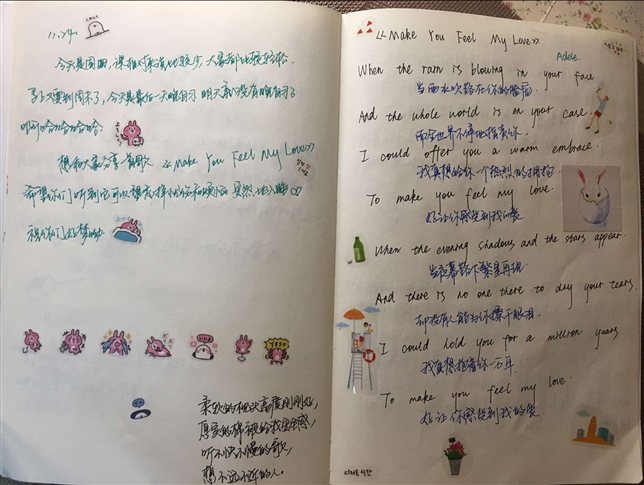 11.24
今天是周四,课相对来说比较少,大家都比较轻松
马上又要到周末了,今天是最后一天晚自习 明天就没有晚自习了
哈哈哈哈哈哈
想和大家分享一首歌 《Make You Feel My Love》
希望你们听到它可以想 掉 安然地入睡♡
祝你们好梦
柔软的枕头高度刚刚好,
厚实的棉被给我安全感,
听不快不慢的歌,
想不远不近的人.
《Make You Feel My Love》
Adele.
When the rain is blowing in your face
当雨水吹落在你的脸庞
And the whole world is on your case.
而全世界不停地指责你
I could offer you a warm embrace.
我真想给你一个热烈的拥抱
To make you feel my love.
好让你感受到我的爱
When the evening shadows and the stars appear
当夜幕落下繁星再现
And there is no one there to dry your tears.
却没有人能为你擦干眼泪.
I could hold you for a million years.
我真想抱着你一万年.
To make you feel my love.
好让你感受到我的爱